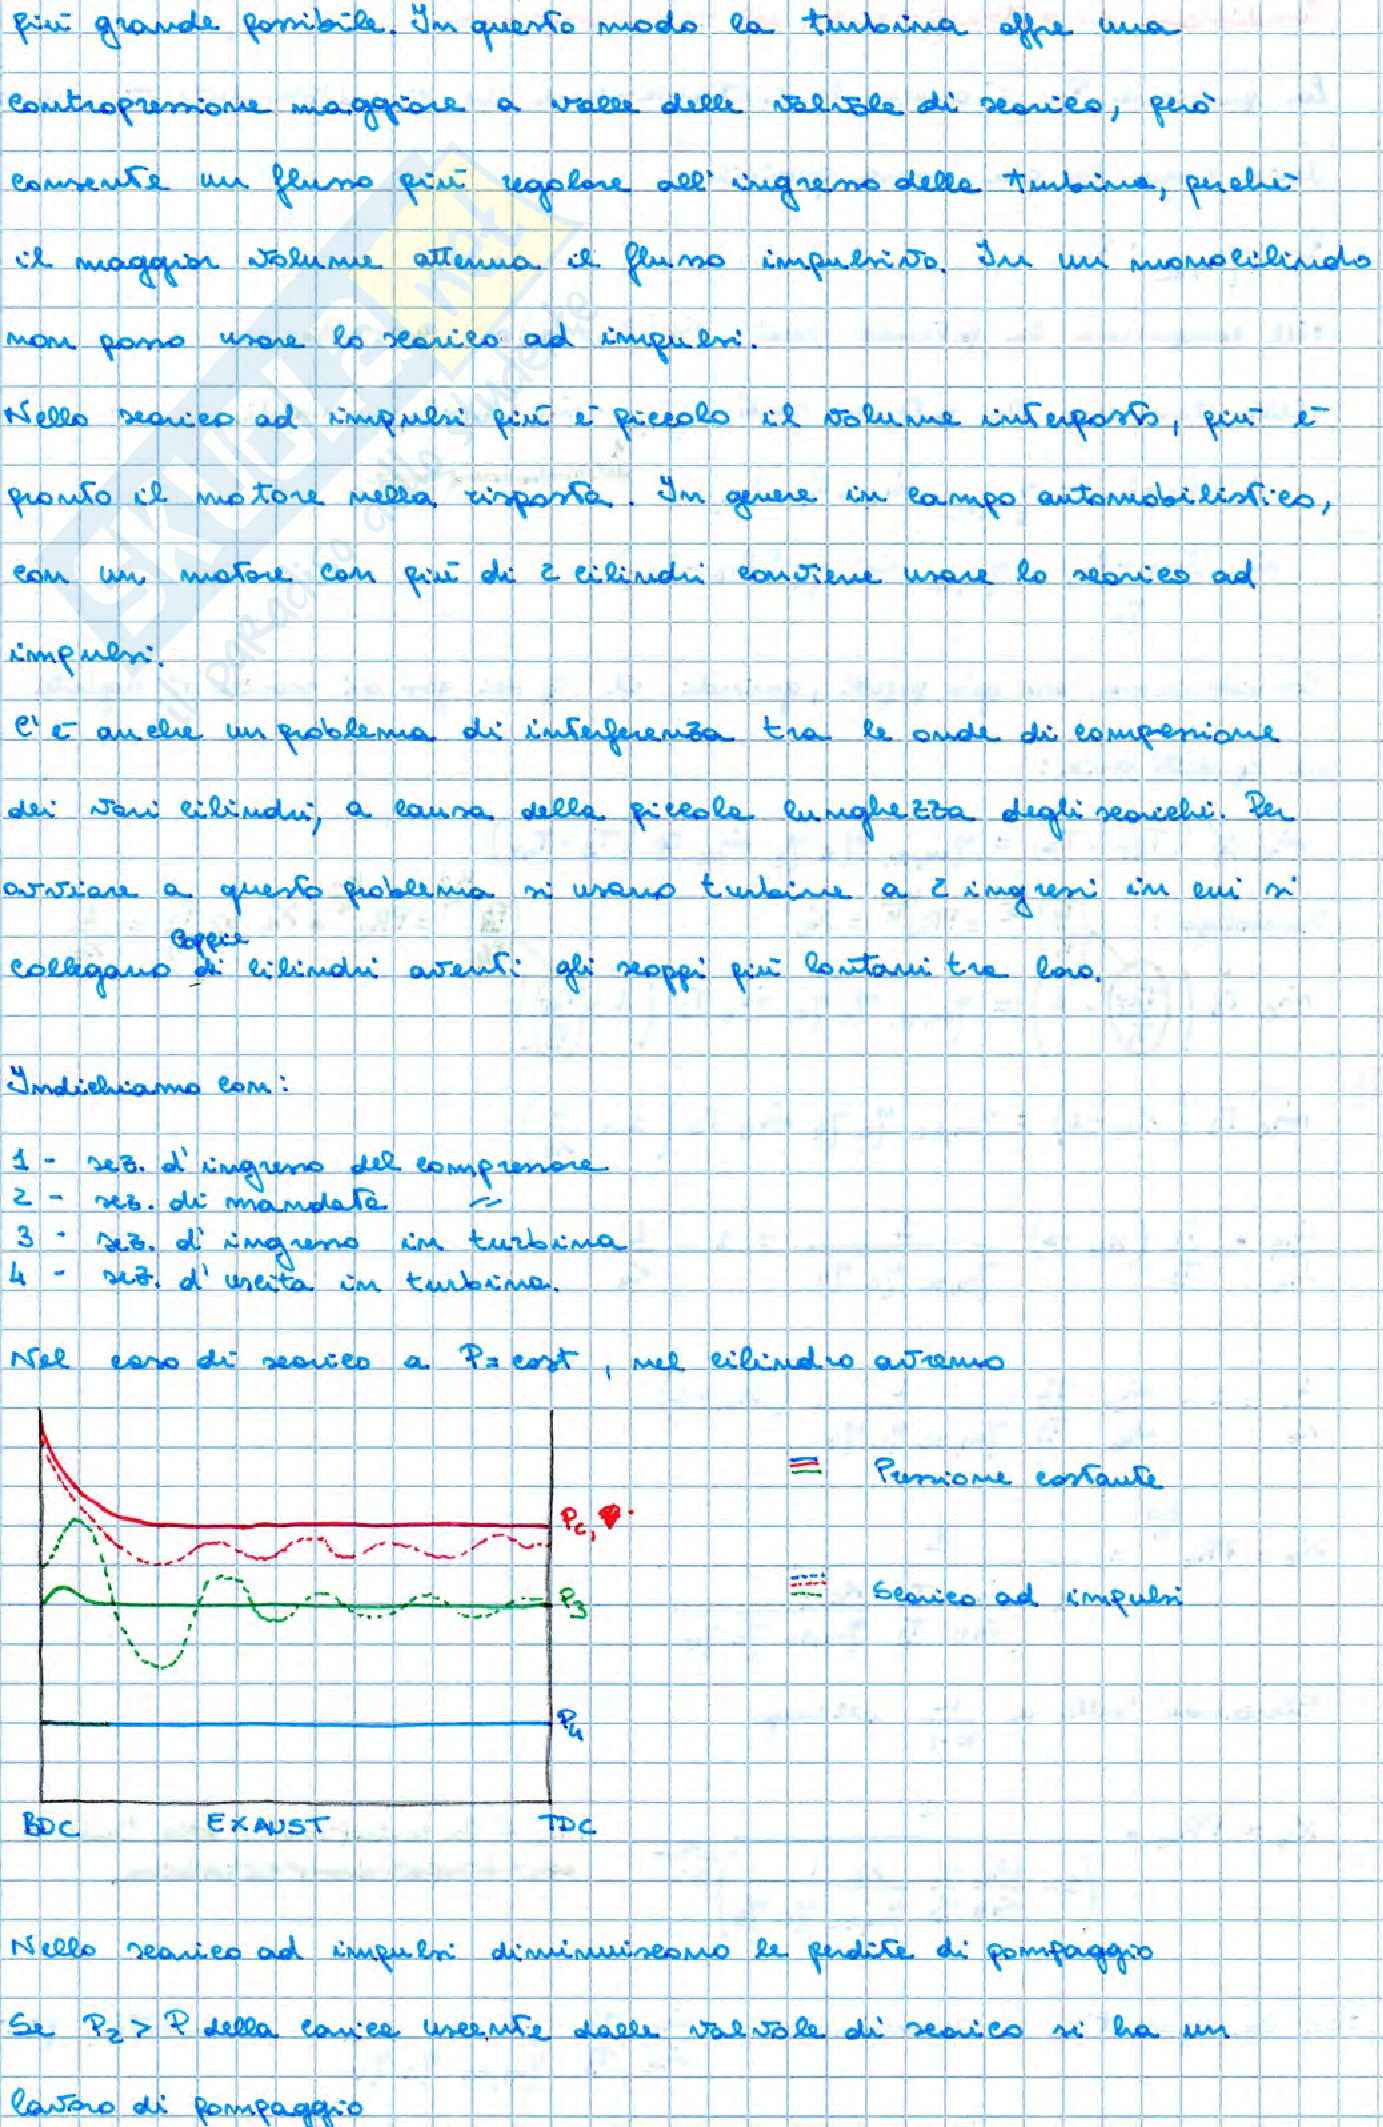 più grande possibile. In questo modo la turbina offre una
contropressione maggiore a valle delle valvole di scarico, però
consente un flusso più regolare all'ingresso della turbina, perchè
il maggior volume attenua il flusso impulsivo. In un monocilindro
non posso usare lo scarico ad impulsi.
Nello scarico ad impulsi più è piccolo il volume interposto, più è
pronto il motore nella risposta. In genere in campo automobilistico,
con un motore con più di 2 cilindri conviene usare lo scarico ad
impulsi.
C'è anche un problema di interferenza tra le onde di compressione
dei vari cilindri, a causa della piccola lunghezza degli scarichi. Per
ovviare a questo problema si usano turbine a 2 ingressi in cui si
collegano coppie di cilindri aventi gli scoppi più lontani tra loro.
Indichiamo con:
1 - sez. d'ingresso del compressore
2 - sez. di mandata "
3 - sez. d'ingresso in turbina
4 - sez. d'uscita in turbina.
Nel caso di scarico a P=cost, nel cilindro avremo
Pc,
P3
P4
Pressione costante
Scarico ad impulsi
BDC EXAUST TDC
Nello scarico ad impulsi diminuiscono le perdite di pompaggio
Se P2 > P della carica uscente dalle valvole di scarico si ha un
lavoro di pompaggio
SKUOLA.net
il paradiso dello studente